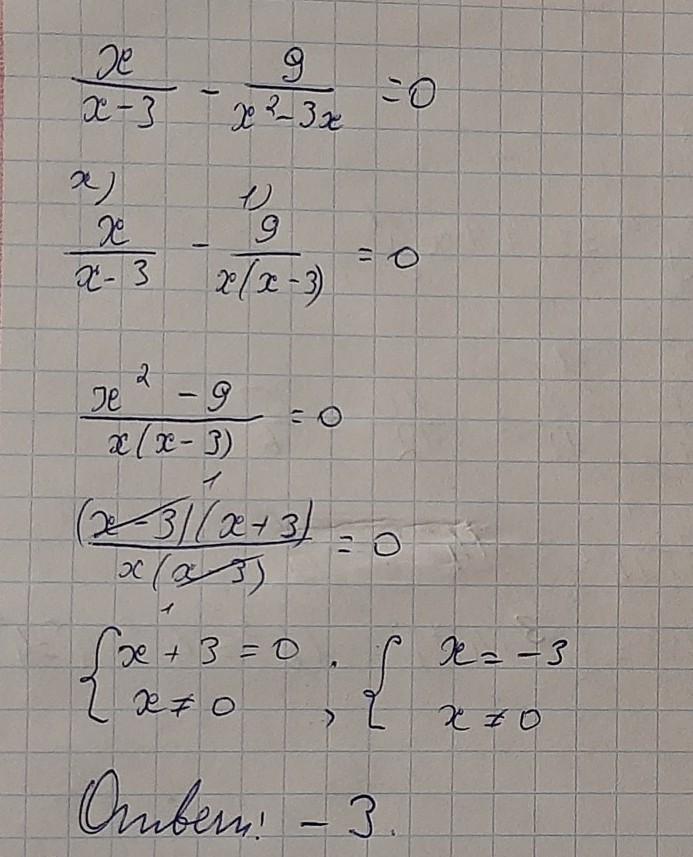 x/(x-3) - 9/(x²-3x) = 0
x) 1)
x/(x-3) - 9/(x(x-3)) = 0
(x²-9)/(x(x-3)) = 0
1
(x-3)(x+3)/(x(x-3)) = 0
1
{x+3=0 . {x=-3
x≠0 , x≠0
Ответ: -3.